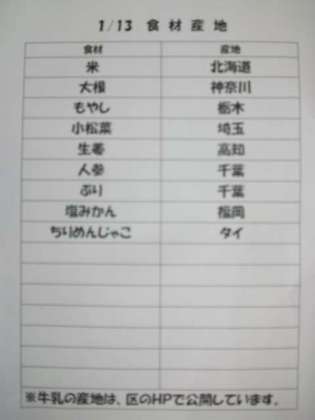 1/13 食材産地
食材 産地
米 北海道
大根 神奈川
もやし 栃木
小松菜 埼玉
生姜 高知
人参 千葉
ぶり 千葉
塩みかん 福岡
ちりめんじゃこ タイ
※牛乳の産地は、区のHPで公開しています。